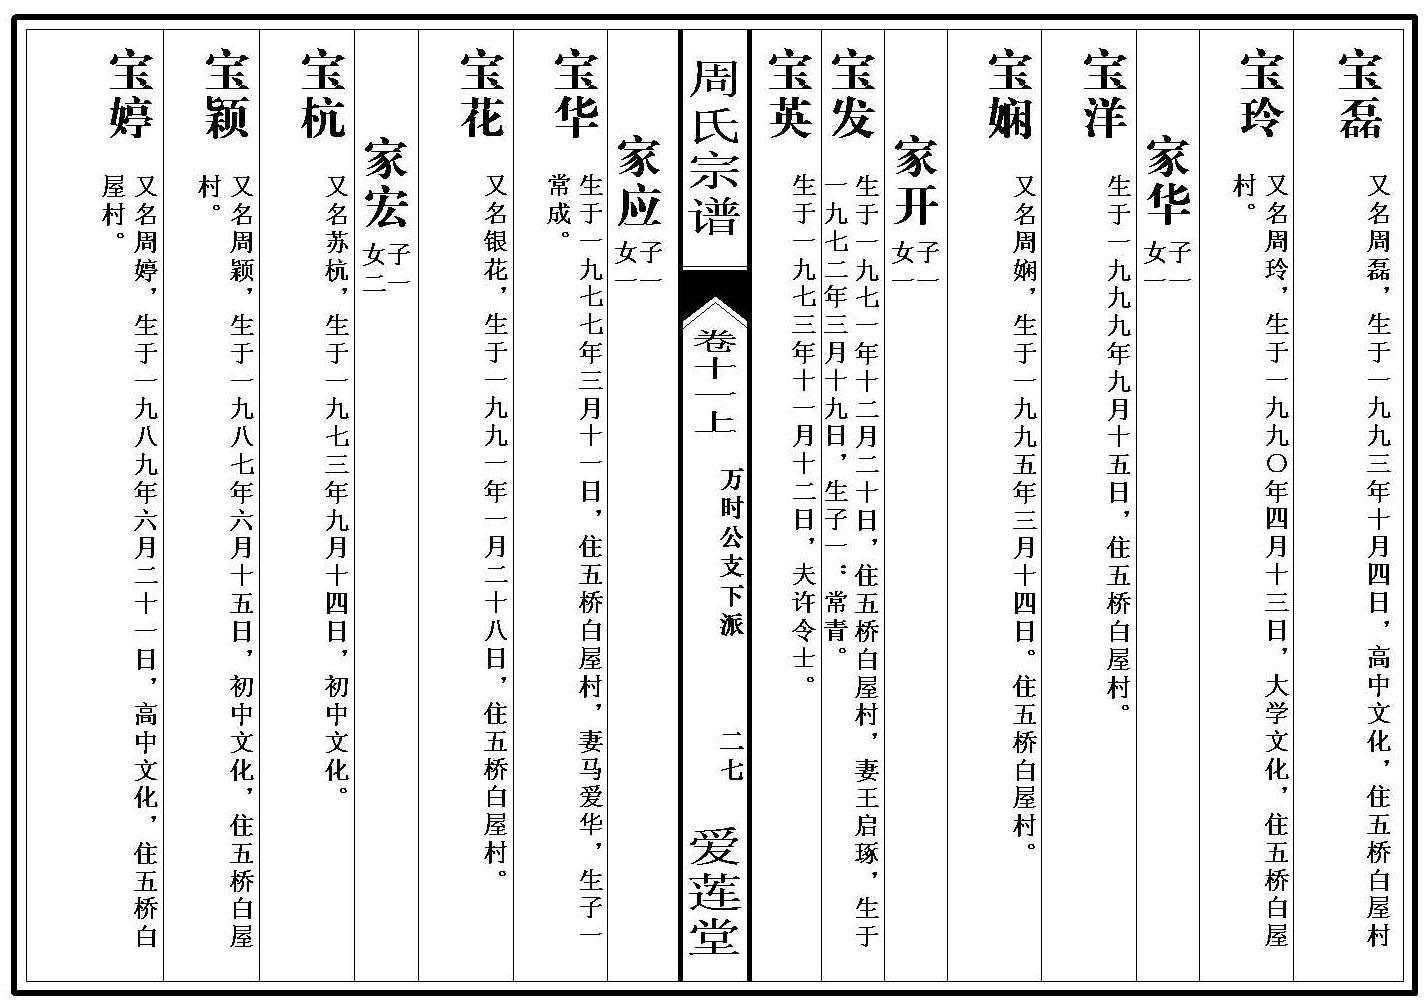 宝磊
又名周磊，生于一九九三年十月四日，高中文化，住五桥白屋村
宝玲
又名周玲，生于一九九〇年四月十三日，大学文化，住五桥白屋
村。
家华
子一
女一
宝洋
生于一九九九年九月十五日，住五桥白屋村。
宝娴
又名周娴，生于一九九五年三月十四日。住五桥白屋村。
家开
子一
女一
宝发
生于一九七一年十二月二十日，住五桥白屋村，妻王启琢，生于
一九七二年三月十九日，生子一：常青。
宝英
生于一九七三年十一月十二日，夫许令士。
周氏宗谱
卷十一上
万时公支下派
二七
爱莲堂
家应
子一
女一
宝华
生于一九七七年三月十一日，住五桥白屋村，妻马爱华，生子一
常成。
宝花
又名银花，生于一九九一年一月二十八日，住五桥白屋村。
家宏
子一
女二
宝杭
又名苏杭，生于一九七三年九月十四日，初中文化。
宝颖
又名周颖，生于一九八七年六月十五日，初中文化，住五桥白屋
村。
宝婷
又名周婷，生于一九八九年六月二十一日，高中文化，住五桥白
屋村。